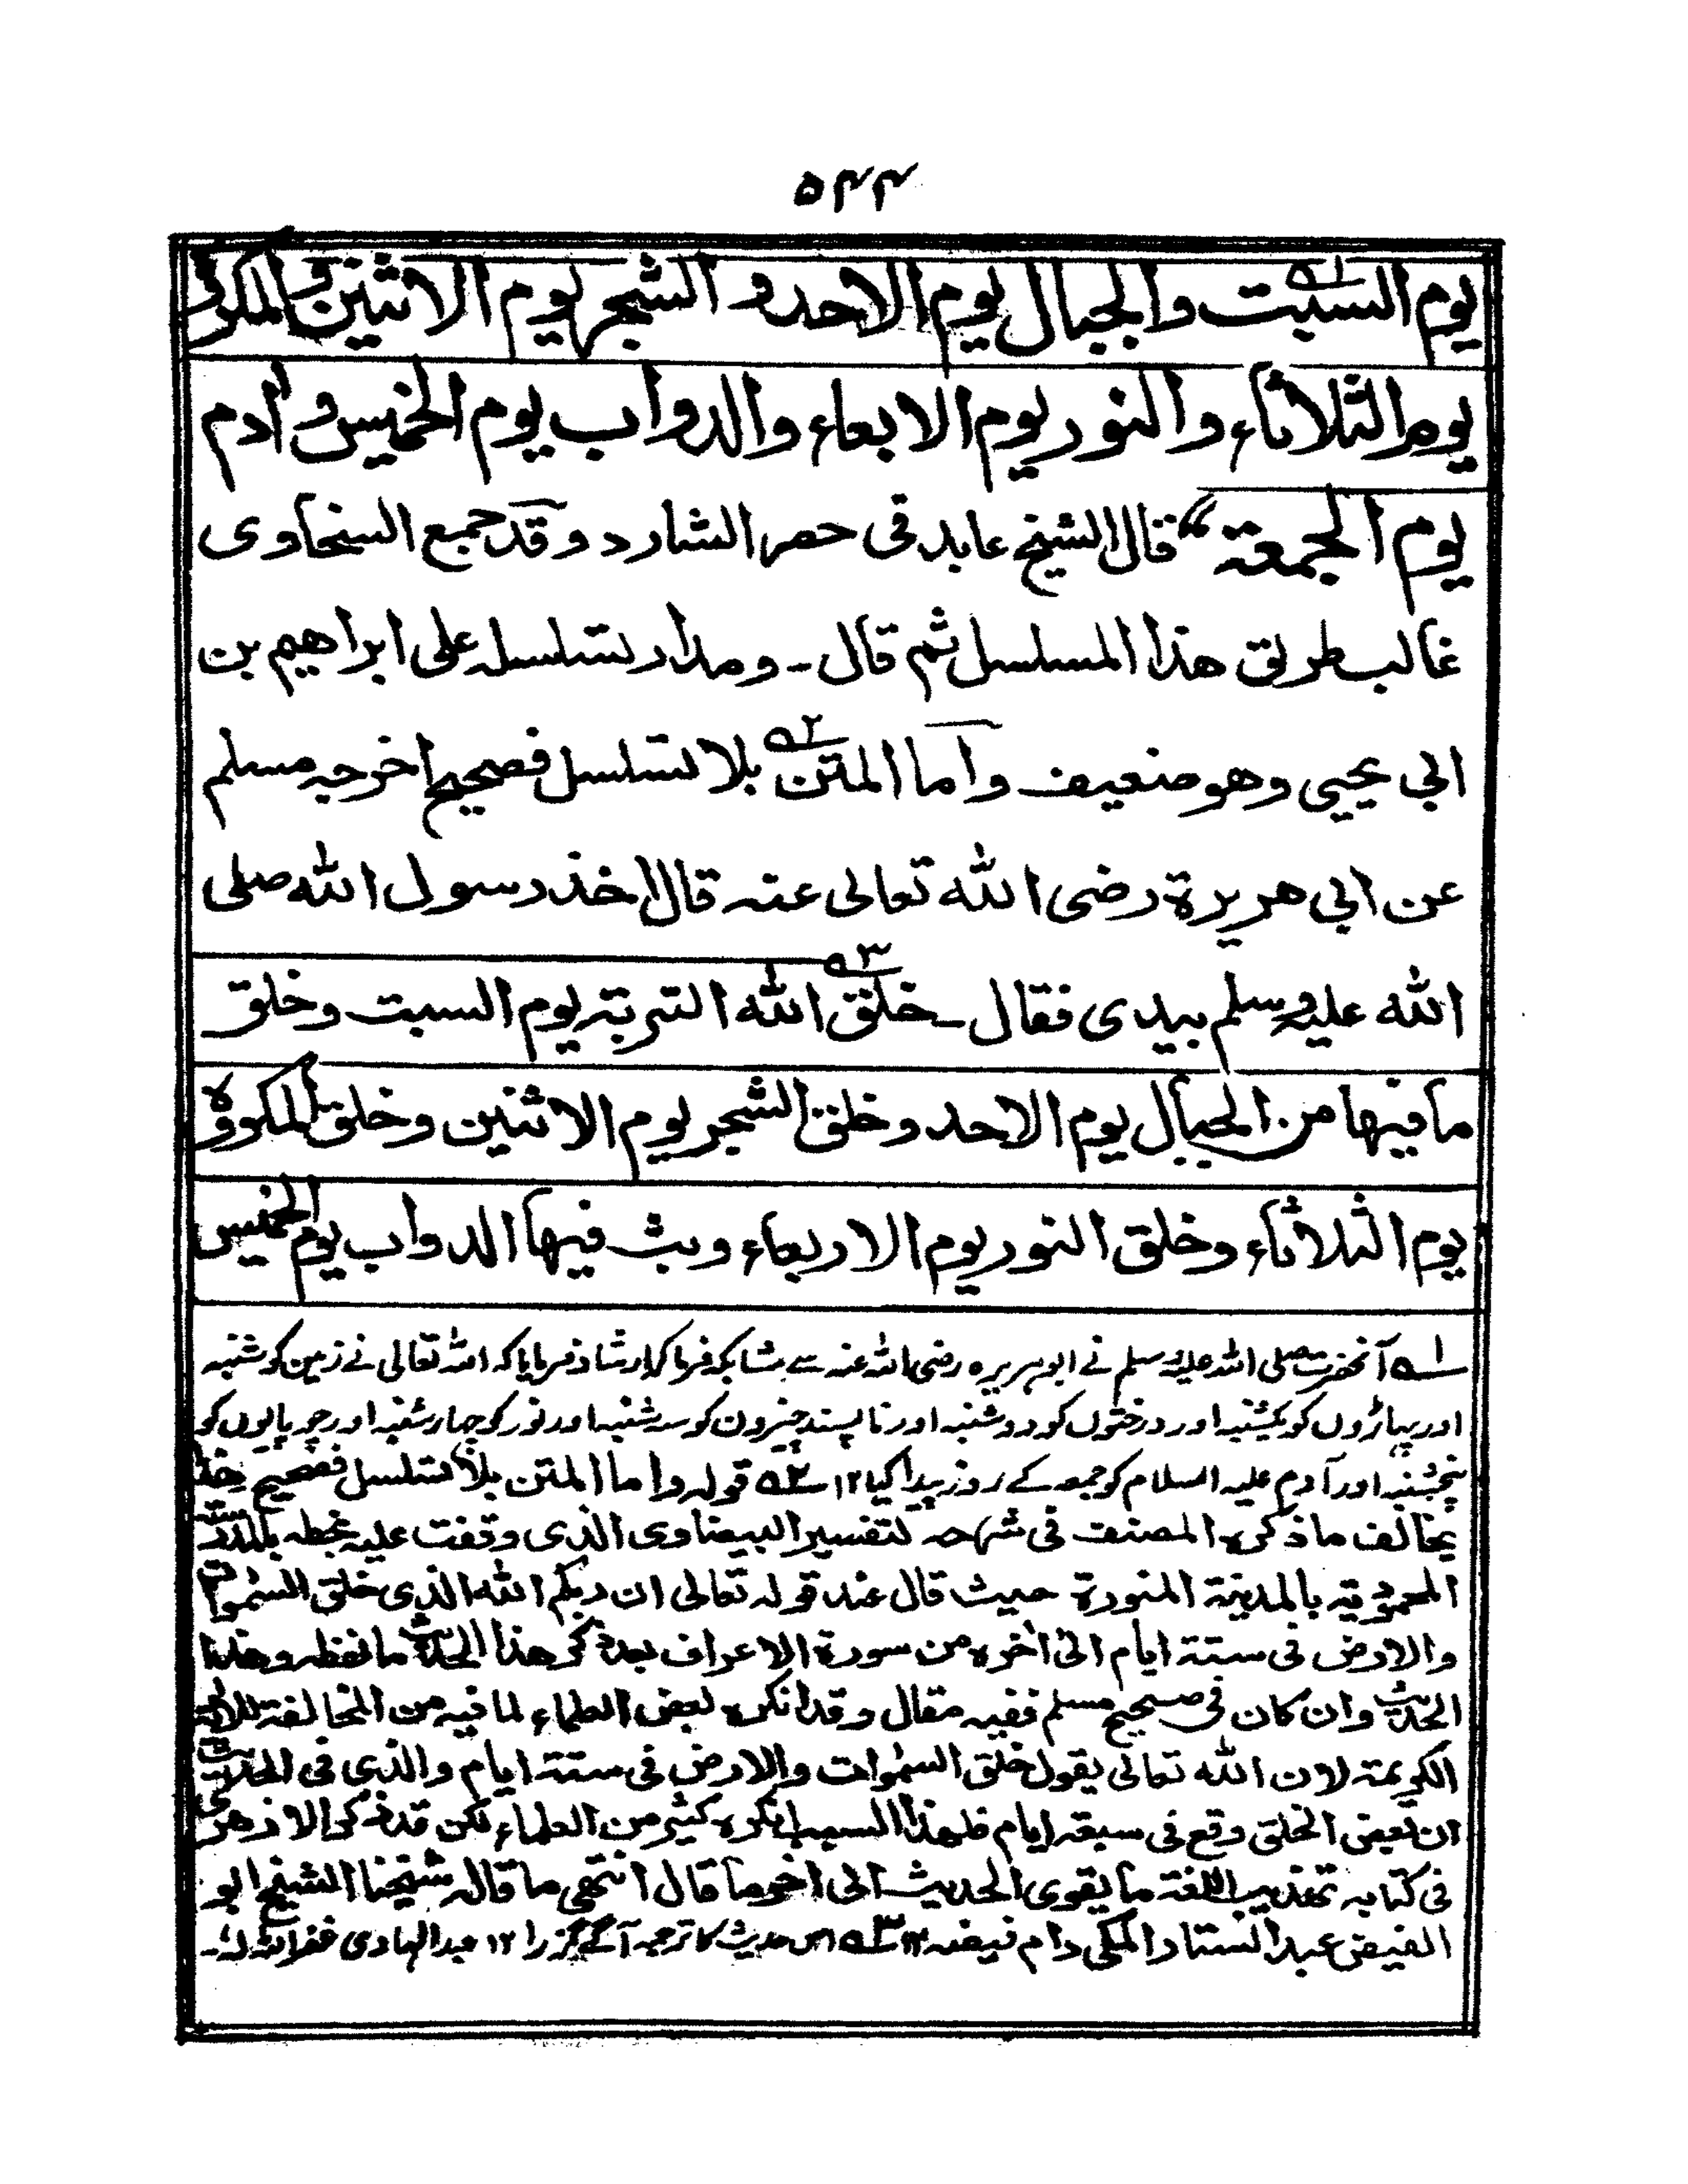 ۵۴۴
يوم السبت والجبال يوم الاحد و الشجر يوم الاثنين والمكروه
يوم الثلاثاء والنور يوم الابعاء والدواب يوم الخميس وآدم
يوم الجمعة " قال الشيخ عابد فى حصر الشارد وقد جمع السخاوى
غالب طريق هذا المسلسل ثم قال ـ ومدار تسلسله على ابراهيم بن
ابي يحيى وهو ضعيف واما المتن ۲ بلا تسلسل فصحيح اخرجه مسلم
عن ابي هريرة رضى الله تعالى عنه قال اخذ رسول الله صلى
الله عليه وسلم بيدى فقال ـ خلق ۳ الله التربة يوم السبت وخلق
ما فيها من الجبال يوم الاحد وخلق الشجر يوم الاثنين وخلق المكروه
يوم الثلاثاء وخلق النور يوم الاربعاء وبث فيها الدواب يوم الخميس
۱ آنحضرت صلى الله عليه وسلم نے ابوہریرہ رضى الله عنه سے مشابکہ فرماکر ارشاد فرمایا کہ الله تعالى نے زمین کو شنبہ
اور پہاڑوں کو یکشنبہ اور درختوں کو دوشنبہ اور ناپسند چیزون کو سہ شنبہ اور نور کو چہار شنبہ اور چوپایوں کو
پنجشنبہ اور آدم علیہ السلام کو جمعہ کے روز پیدا کیا ۱۲ ۲ قوله واما المتن بلا تسلسل فصحيح
يخالف ما ذكره المصنف فى شرحه لتفسير البيضاوى الذى وقفت عليه بخطه
المحمودية بالمدينة المنورة حيث قال عند قوله تعالى ان ربكم الله الذى خلق السموات
والارض فى ستة ايام الى آخره من سورة الاعراف بعد ذكر هذا الحديث ما لفظه وهذا
الحديث وان كان فى صحيح مسلم ففيه مقال وقد انكره بعض العلماء لما فيه من المخالفة للآية
الكريمة لان الله تعالى يقول خلق السموات والارض فى ستة ايام والذى فى الحديث
ان بعض الخلق وقع فى سبعة ايام فلهذا السبب انكره كثير من العلماء لكن قد ذكر الازهرى
فى كتابه تهذيب اللغة ما يقوى الحديث الى آخر ما قال انتهى ما قاله شيخنا الشيخ ابو
الفيض عبد الستار المكى دام فيضه ۱۲ ۳ اس حدیث کا ترجمہ آگے گزرا ۱۲ عبد الہادی غفر الله له ـ